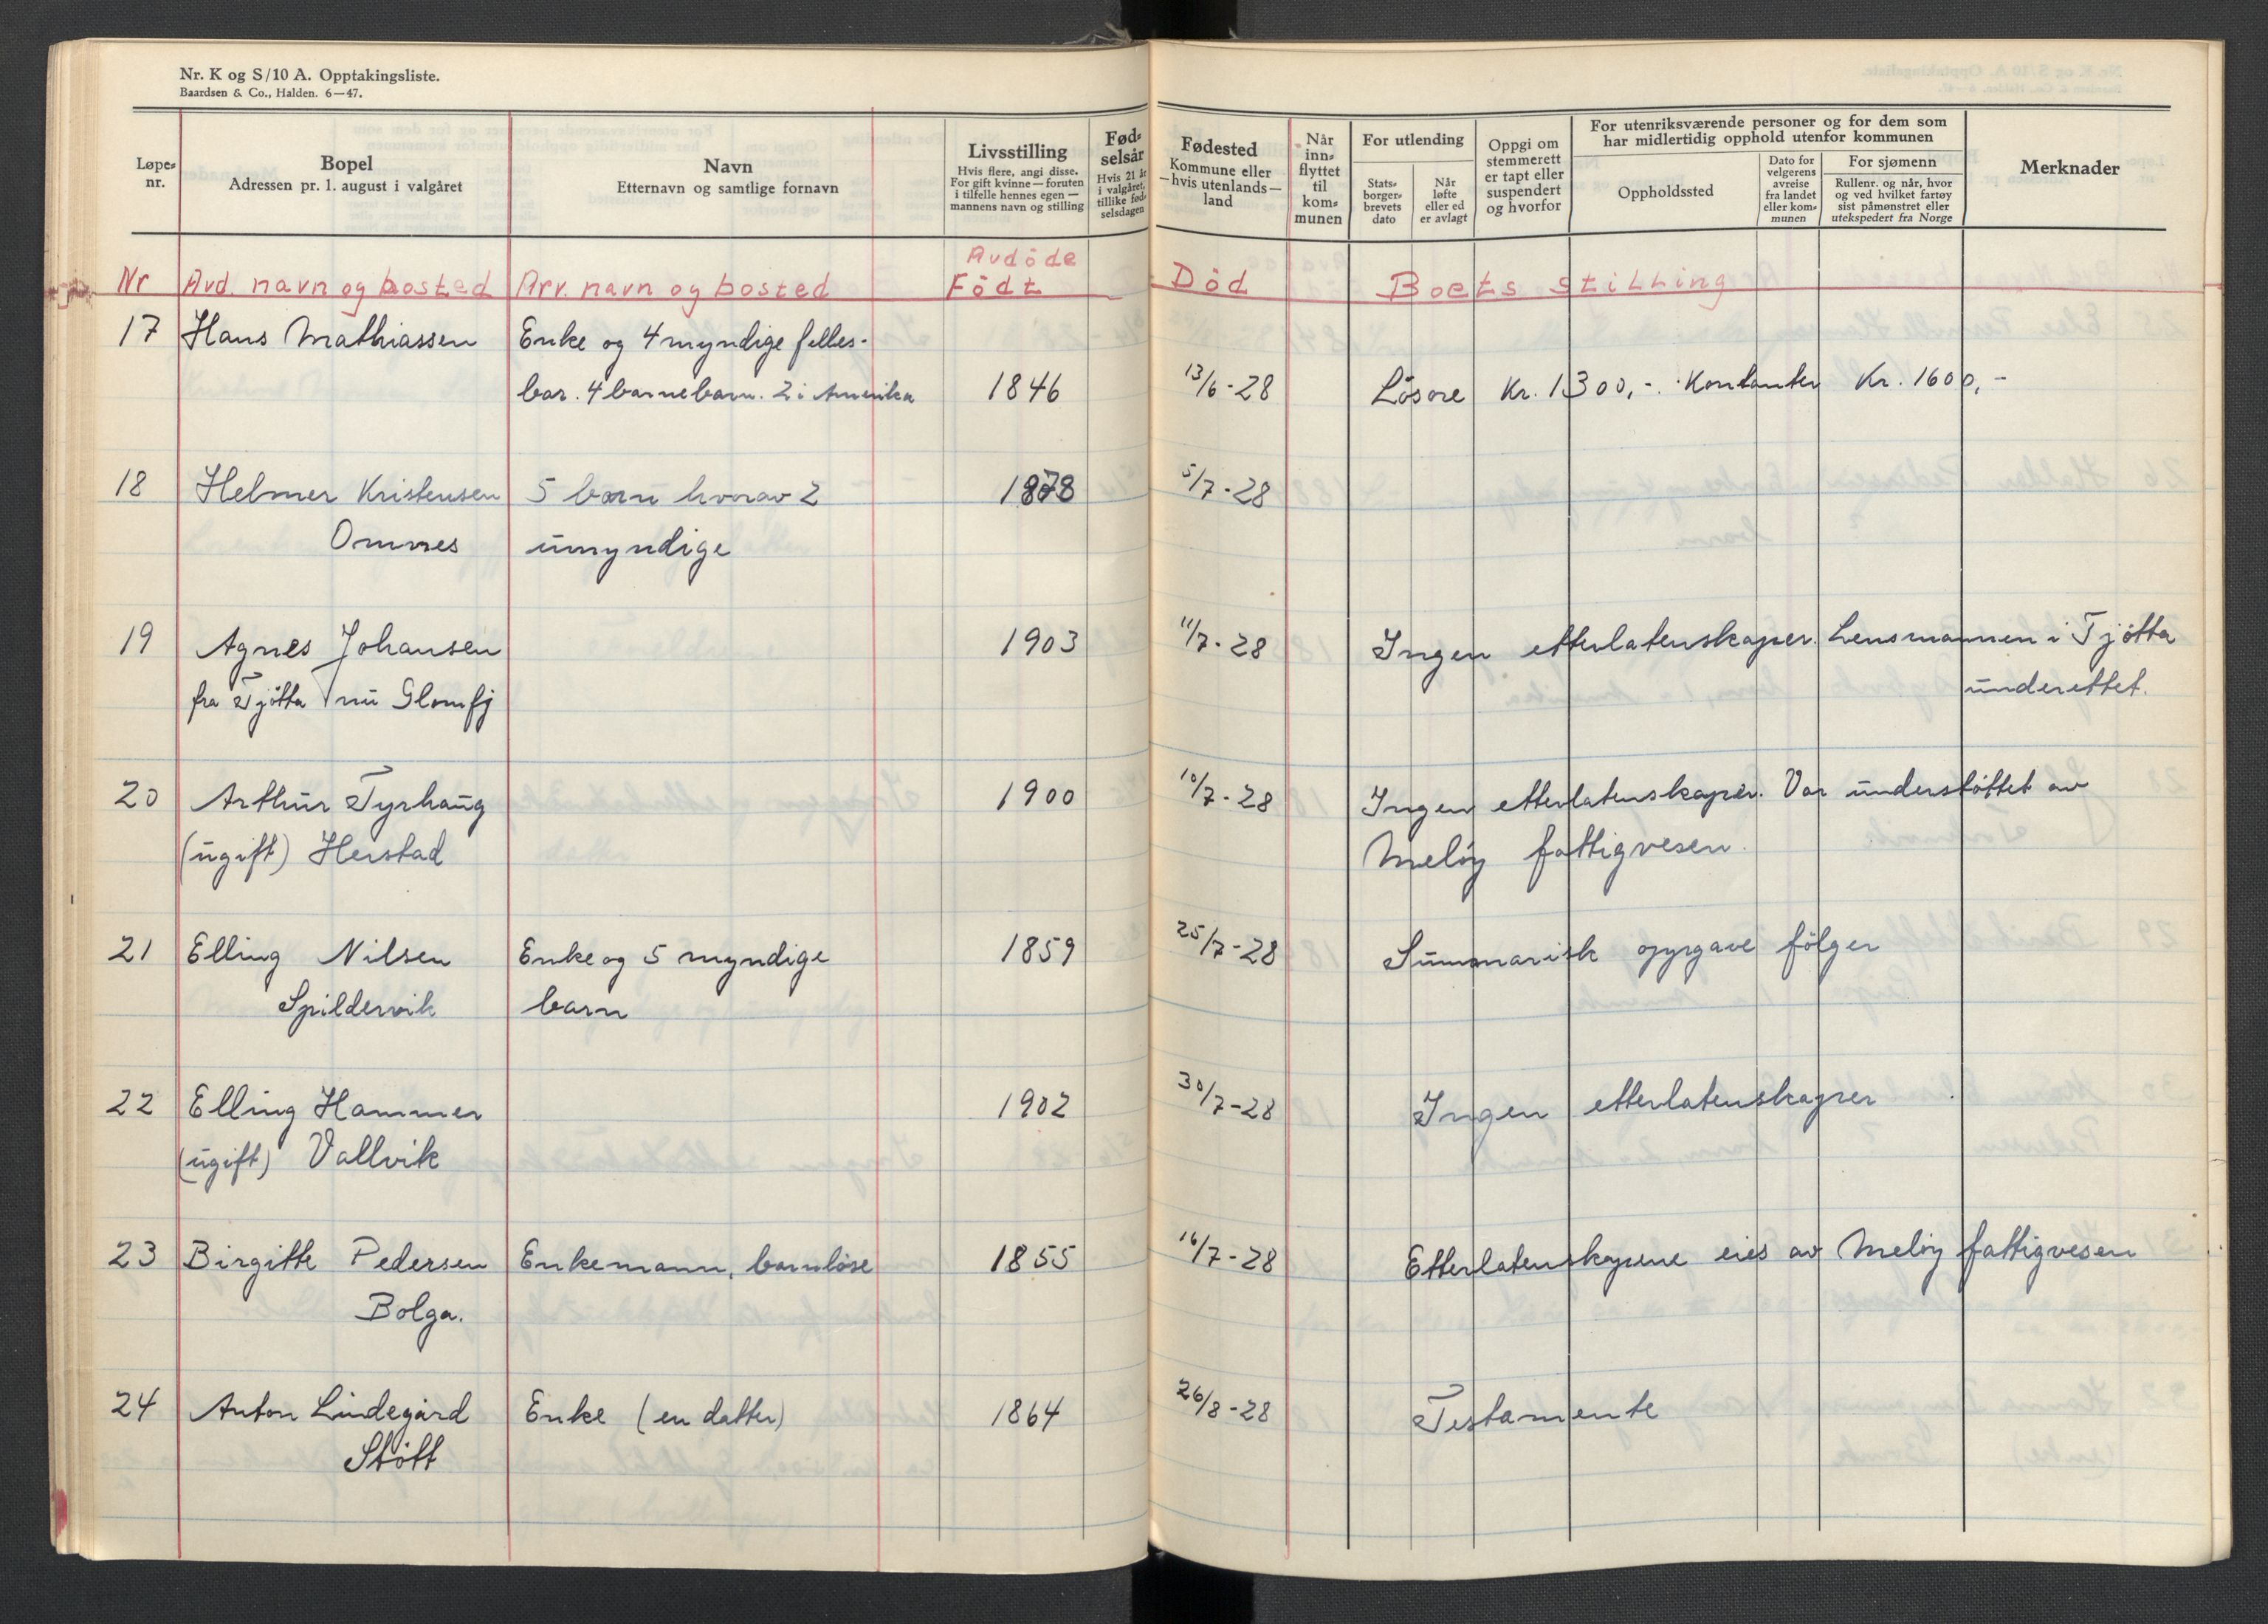 Nr. K og S/10 A. Opptakingsliste.
Baardsen & Co., Halden. 6—47.
Løpe-
nr.
Bopel
Adressen pr. 1. august i valgåret
Navn
Etternavn og samtlige fornavn
Livsstilling
Hvis flere, angi disse.
For gift kvinne — foruten
i tilfelle hennes egen —
mannens navn og stilling
Fød-
selsår
Hvis 21 år
i valgåret,
tillike fød-
selsdagen
Fødested
Kommune eller
—hvis utenlands—
land
Når
inn-
flyttet
til
kom-
munen
For utlending
Stats-
borger-
brevets
dato
Når
løfte
eller ed
er avlagt
Oppgi om
stemmerett
er tapt eller
suspendert
og hvorfor
For utenriksværende personer og for dem som
har midlertidig opphold utenfor kommunen
Oppholdssted
Dato for
velgerens
avreise
fra landet
eller kom-
munen
For sjømenn
Rullenr. og når, hvor
og ved hvilket fartøy
sist påmønstret eller
utekspedert fra Norge
Merknader
Nr Avd. navn og bosted Arv. navn og bosted Avdöde Födt Död Boets stilling
17 Hans Mathiassen Enke og 4 myndige felles-
bar. 4 barnebarn. 2 i Amerika 1846 13/6-28 Lösöre Kr. 1300,-. Kontanter Kr. 1600,-
18 Helmer Kristensen 5 barn hvorav 2 1878 5/7-28
Ornnes umyndige
19 Agnes Johansen 1903 11/7-28 Ingen etterlatenskaper. Lensmannen i Tjötta
fra Tjötta nu Glomfj underettet.
20 Arthur Tyrhaug 1900 10/7-28 Ingen etterlatenskaper. Var understöttet av
(ugift) Herstad Melöy fattigvesen.
21 Elling Nilsen Enke og 5 myndige 1859 25/7-28 Summarisk opgave fölger
Spildervik barn
22 Elling Hammer 1902 30/7-28 Ingen etterlatenskaper
(ugift) Vallvik
23 Birgitte Pedersen Enkemann, barnlöse 1855 16/7-28 Etterlatenskapene eies av Melöy fattigvesen
Bolga.
24 Anton Lindegård Enke (en datter) 1864 26/8-28 Testamente
Stött